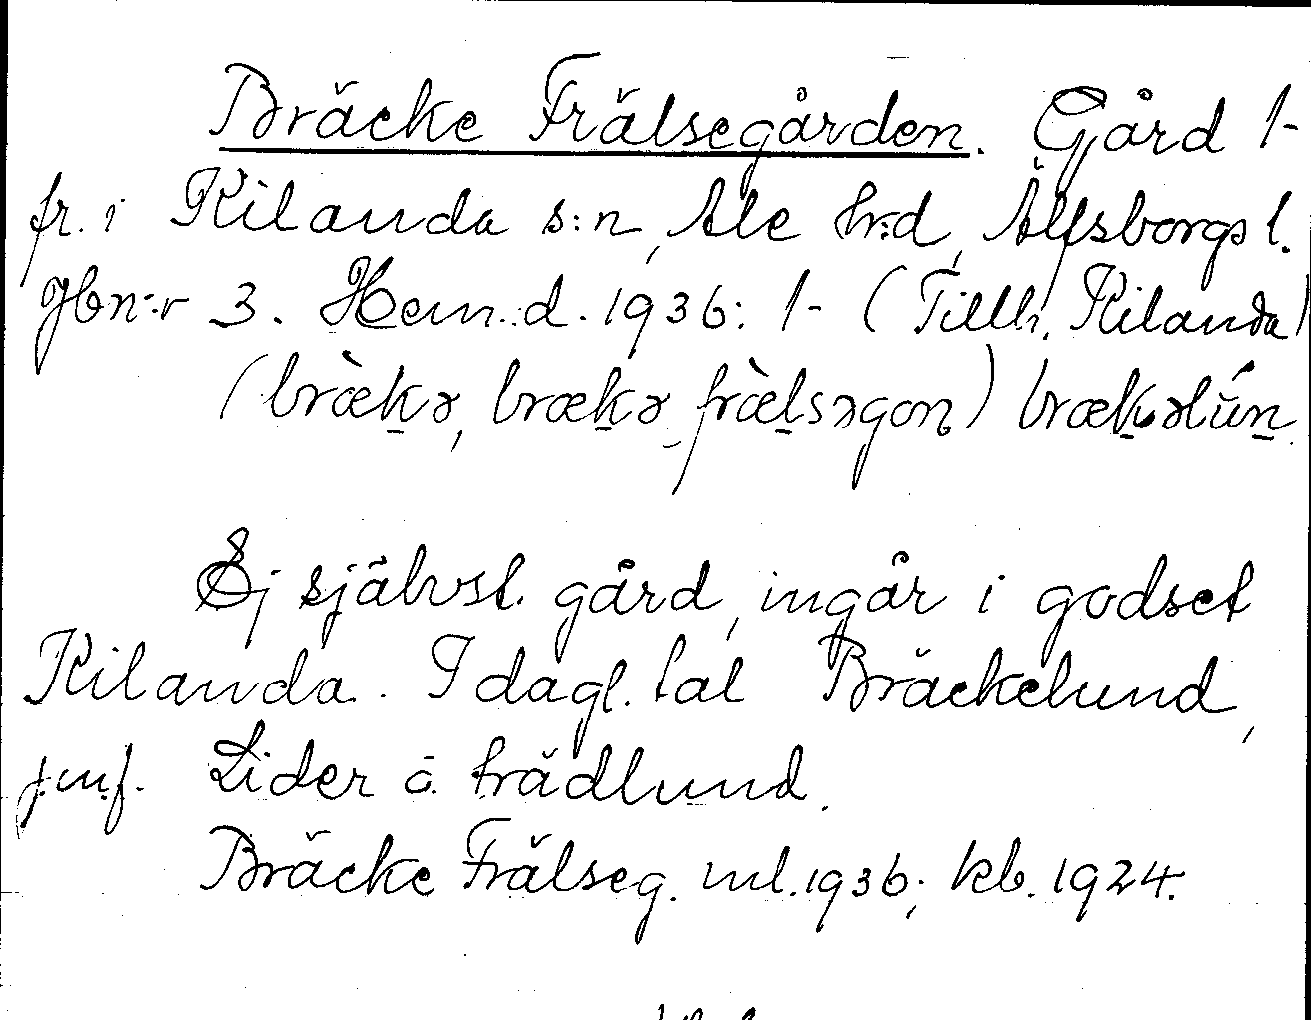 Bräcke Frälsegården. Gård 1-
fr. i Kilanda s:n, Ale hrd, Älfsborgs l.
Jbn:r 3. Hem.d. 1936: 1- (Tillh. Kilanda)
(bræ̀kə, brækə fræ̀lsəgoṇ) brækəlún.
Ej självst. gård, ingår i godset
Kilanda. I dagl. tal Bräckelund,
jmf. Lider o. trädlund.
Bräcke Frälseg. ml. 1936; kb. 1924.